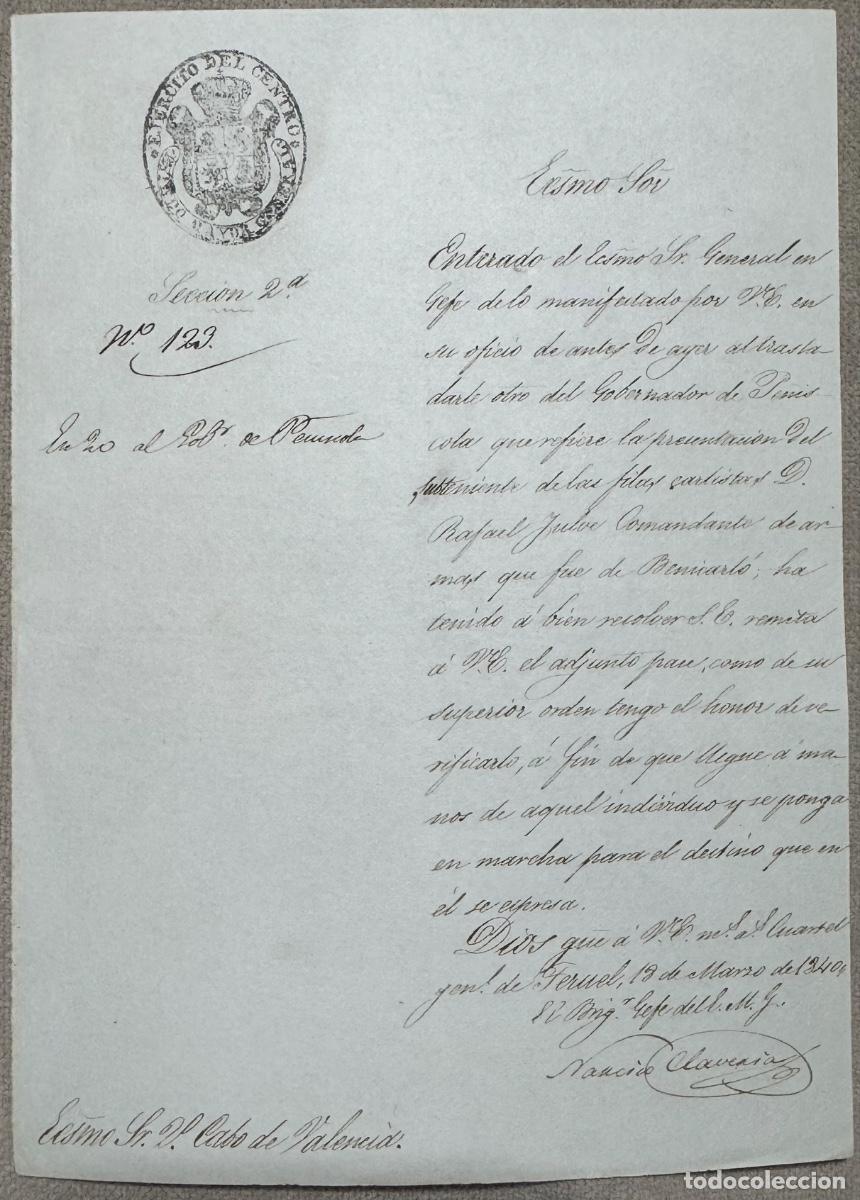 EJERCITO DEL CENTRO
Seccion 2.a
N.o 123.
En 20 al Gob.r de Peniscola
Ecs̃mo Sor
Enterado el Ecs̃mo Sr. General en
Gefe de lo manifestado por V.E. en
su oficio de antes de ayer al trasla-
darle otro del Gobernador de Penis-
cola que refiere la presentacion del
subteniente de las filas carlistas D.
Rafael Julve Comandante de ar-
mas que fue de Benicarló; ha
tenido á bien resolver S.E. remita
á V.E. el adjunto pase, como de su
superior orden tengo el honor de ve-
rificarlo, á fin de que llegue á ma-
nos de aquel individuo y se ponga
en marcha para el destino que en
él se espresa.
Dios gũe á V.E. m.s a.s Cuartel
gen.l de Teruel, 18 de Marzo de 1840.
El Brig.r Gefe del E. M. G.
Narciso Claveria
Ecs̃mo Sr. 2.o Cabo de Valencia.
todocoleccion